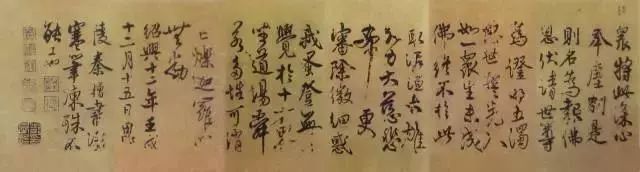 衆將此深心
奉塵刹是
則名為報佛
恩伏請世尊
為證明五濁
惡世誓先入
如一衆生未成
佛終不於此
取泥洹大雄
大力大慈悲
希更
審除微細惑
我蚤登無上
覺於十方界
坐道場舜
若多性可銷
亡爍迦羅心
無動
紹興十二年壬戌
十二月十五日思
陵秦檜書
寒筆凍殊不
能工也